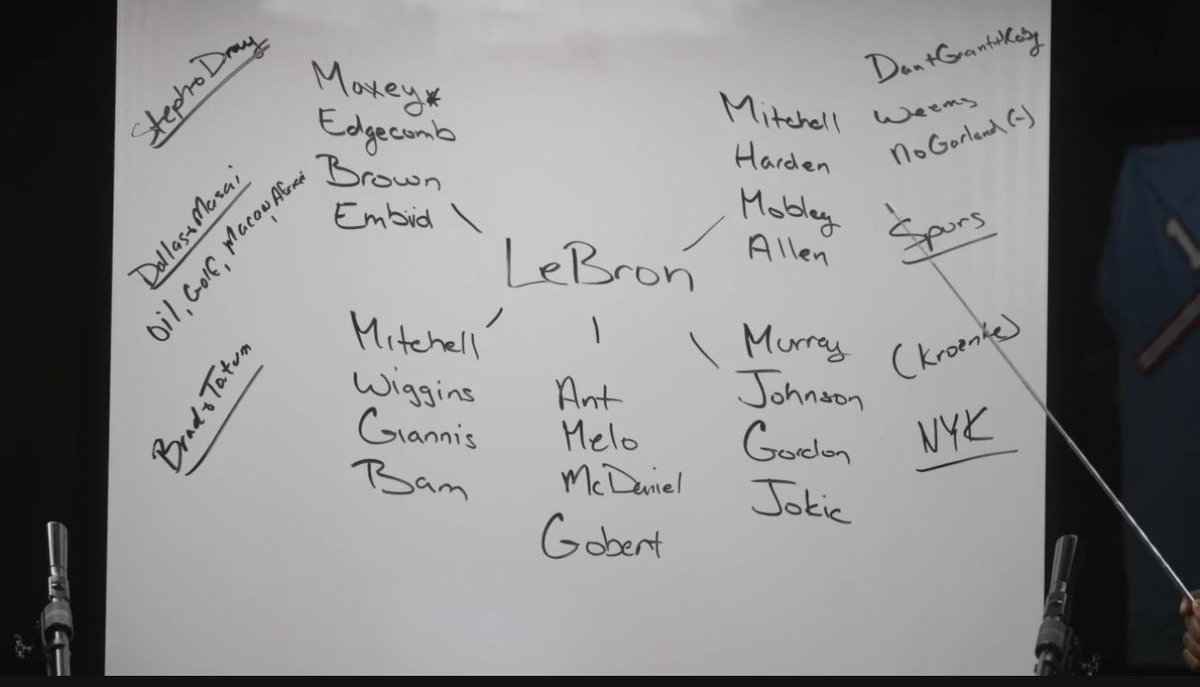 Steph + Dray
Dallas + Masai
Oil, Golf, Macon,
Brad + Tatum
Maxey*
Edgecomb
Brown
Embiid
LeBron
Mitchell
Harden
Mobley
Allen
Dan + Grant + Koby
Weems
No Garland (-)
Spurs
Mitchell
Wiggins
Giannis
Bam
Ant
Melo
McDaniel
Gobert
Murray
Johnson
Gordon
Jokic
(Kroenke)
NYK